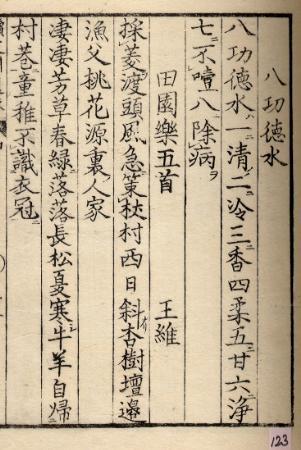 八功德水
八功德水一清二冷三香四柔五甘六淨
七不噎八除病
田園樂五首 王維
採菱渡頭風急策杖村西日斜杏樹壇邊
漁父桃花源裏人家
淒淒芳草春綠落落長松夏寒牛羊自歸
村巷童稚不識衣冠
123